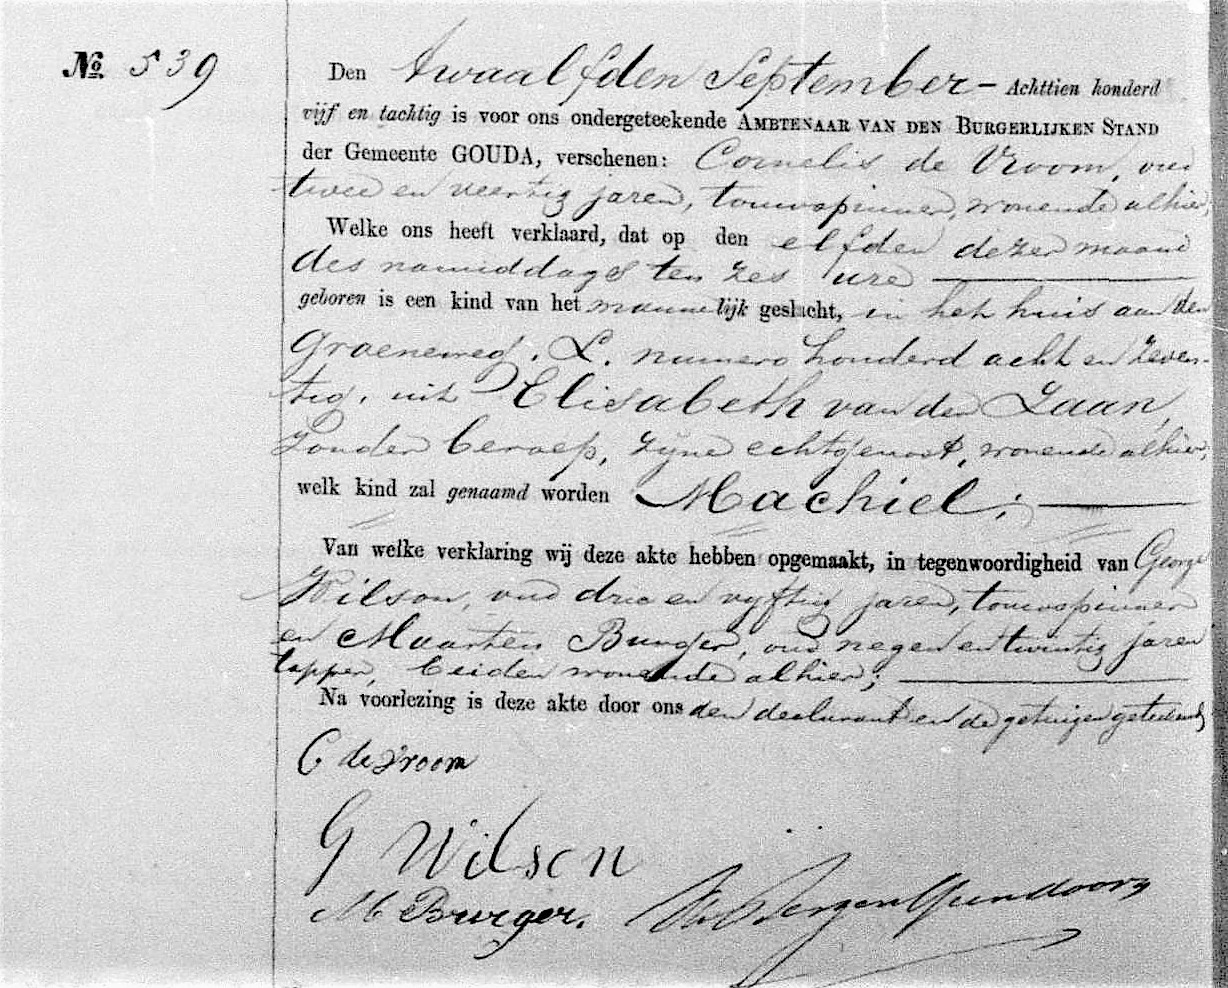 No. 539
Den twaalfden September – Achttien honderd
vijf en tachtig is voor ons ondergeteekende AMBTENAAR VAN DEN BURGERLIJKEN STAND
der Gemeente GOUDA, verschenen: Cornelis de Vroom, oud
twee en veertig jaren, touwspinner, wonende alhier,
Welke ons heeft verklaard, dat op den elfden dezer maand
des namiddags ten zes ure
geboren is een kind van het mannelijk geslacht, in het huis aan den
Groeneweg. L. numero honderd acht en zeven-
tig, uit Elisabeth van der Laan,
zonder beroep, zijne echtgenoot, wonende alhier;
welk kind zal genaamd worden Machiel;
Van welke verklaring wij deze akte hebben opgemaakt, in tegenwoordigheid van George
Wilson, oud drie en vijftig jaren, touwspinner
en Maarten Burger, oud negen en twintig jaren
tapper, beiden wonende alhier;
Na voorlezing is deze akte door ons den declarant en de getuigen geteekend
C de Vroom
G Wilson
M Burger.